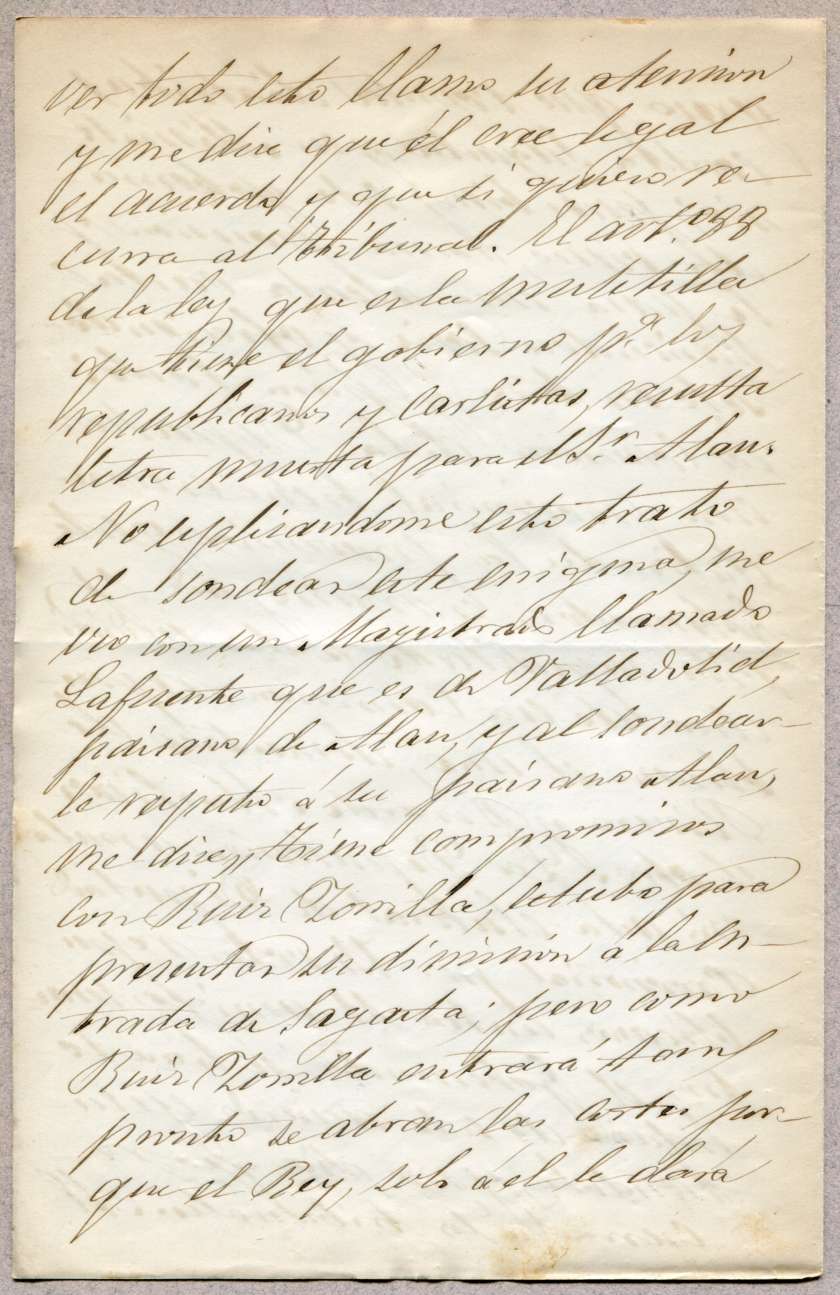 ver todo esto llamo su atension
y me dice que él cree legal
el acuerdo y que si quiero re-
curra al Tribunal. El art.º 88
de la ley que es la muletilla
que tiene el gobierno p.ª los
republicanos y carlistas, resulta
letra muerta para el Sr. Alau.
No esplicandome esto trato
de sondear este enigma, me
veo con un Magistrado llamado
Lafuente que es de Valladolid,
paisano de Alau, y al sondear-
le respecto á su paisano Alau,
me dice, "tiene compromisos
con Ruiz Zorrilla, estubo para
presentar su dimision a la en-
trada de Sagasta; pero como
Ruiz Zorrilla entrará tan
pronto se abran las cortes por-
que el Rey, solo á el le dará